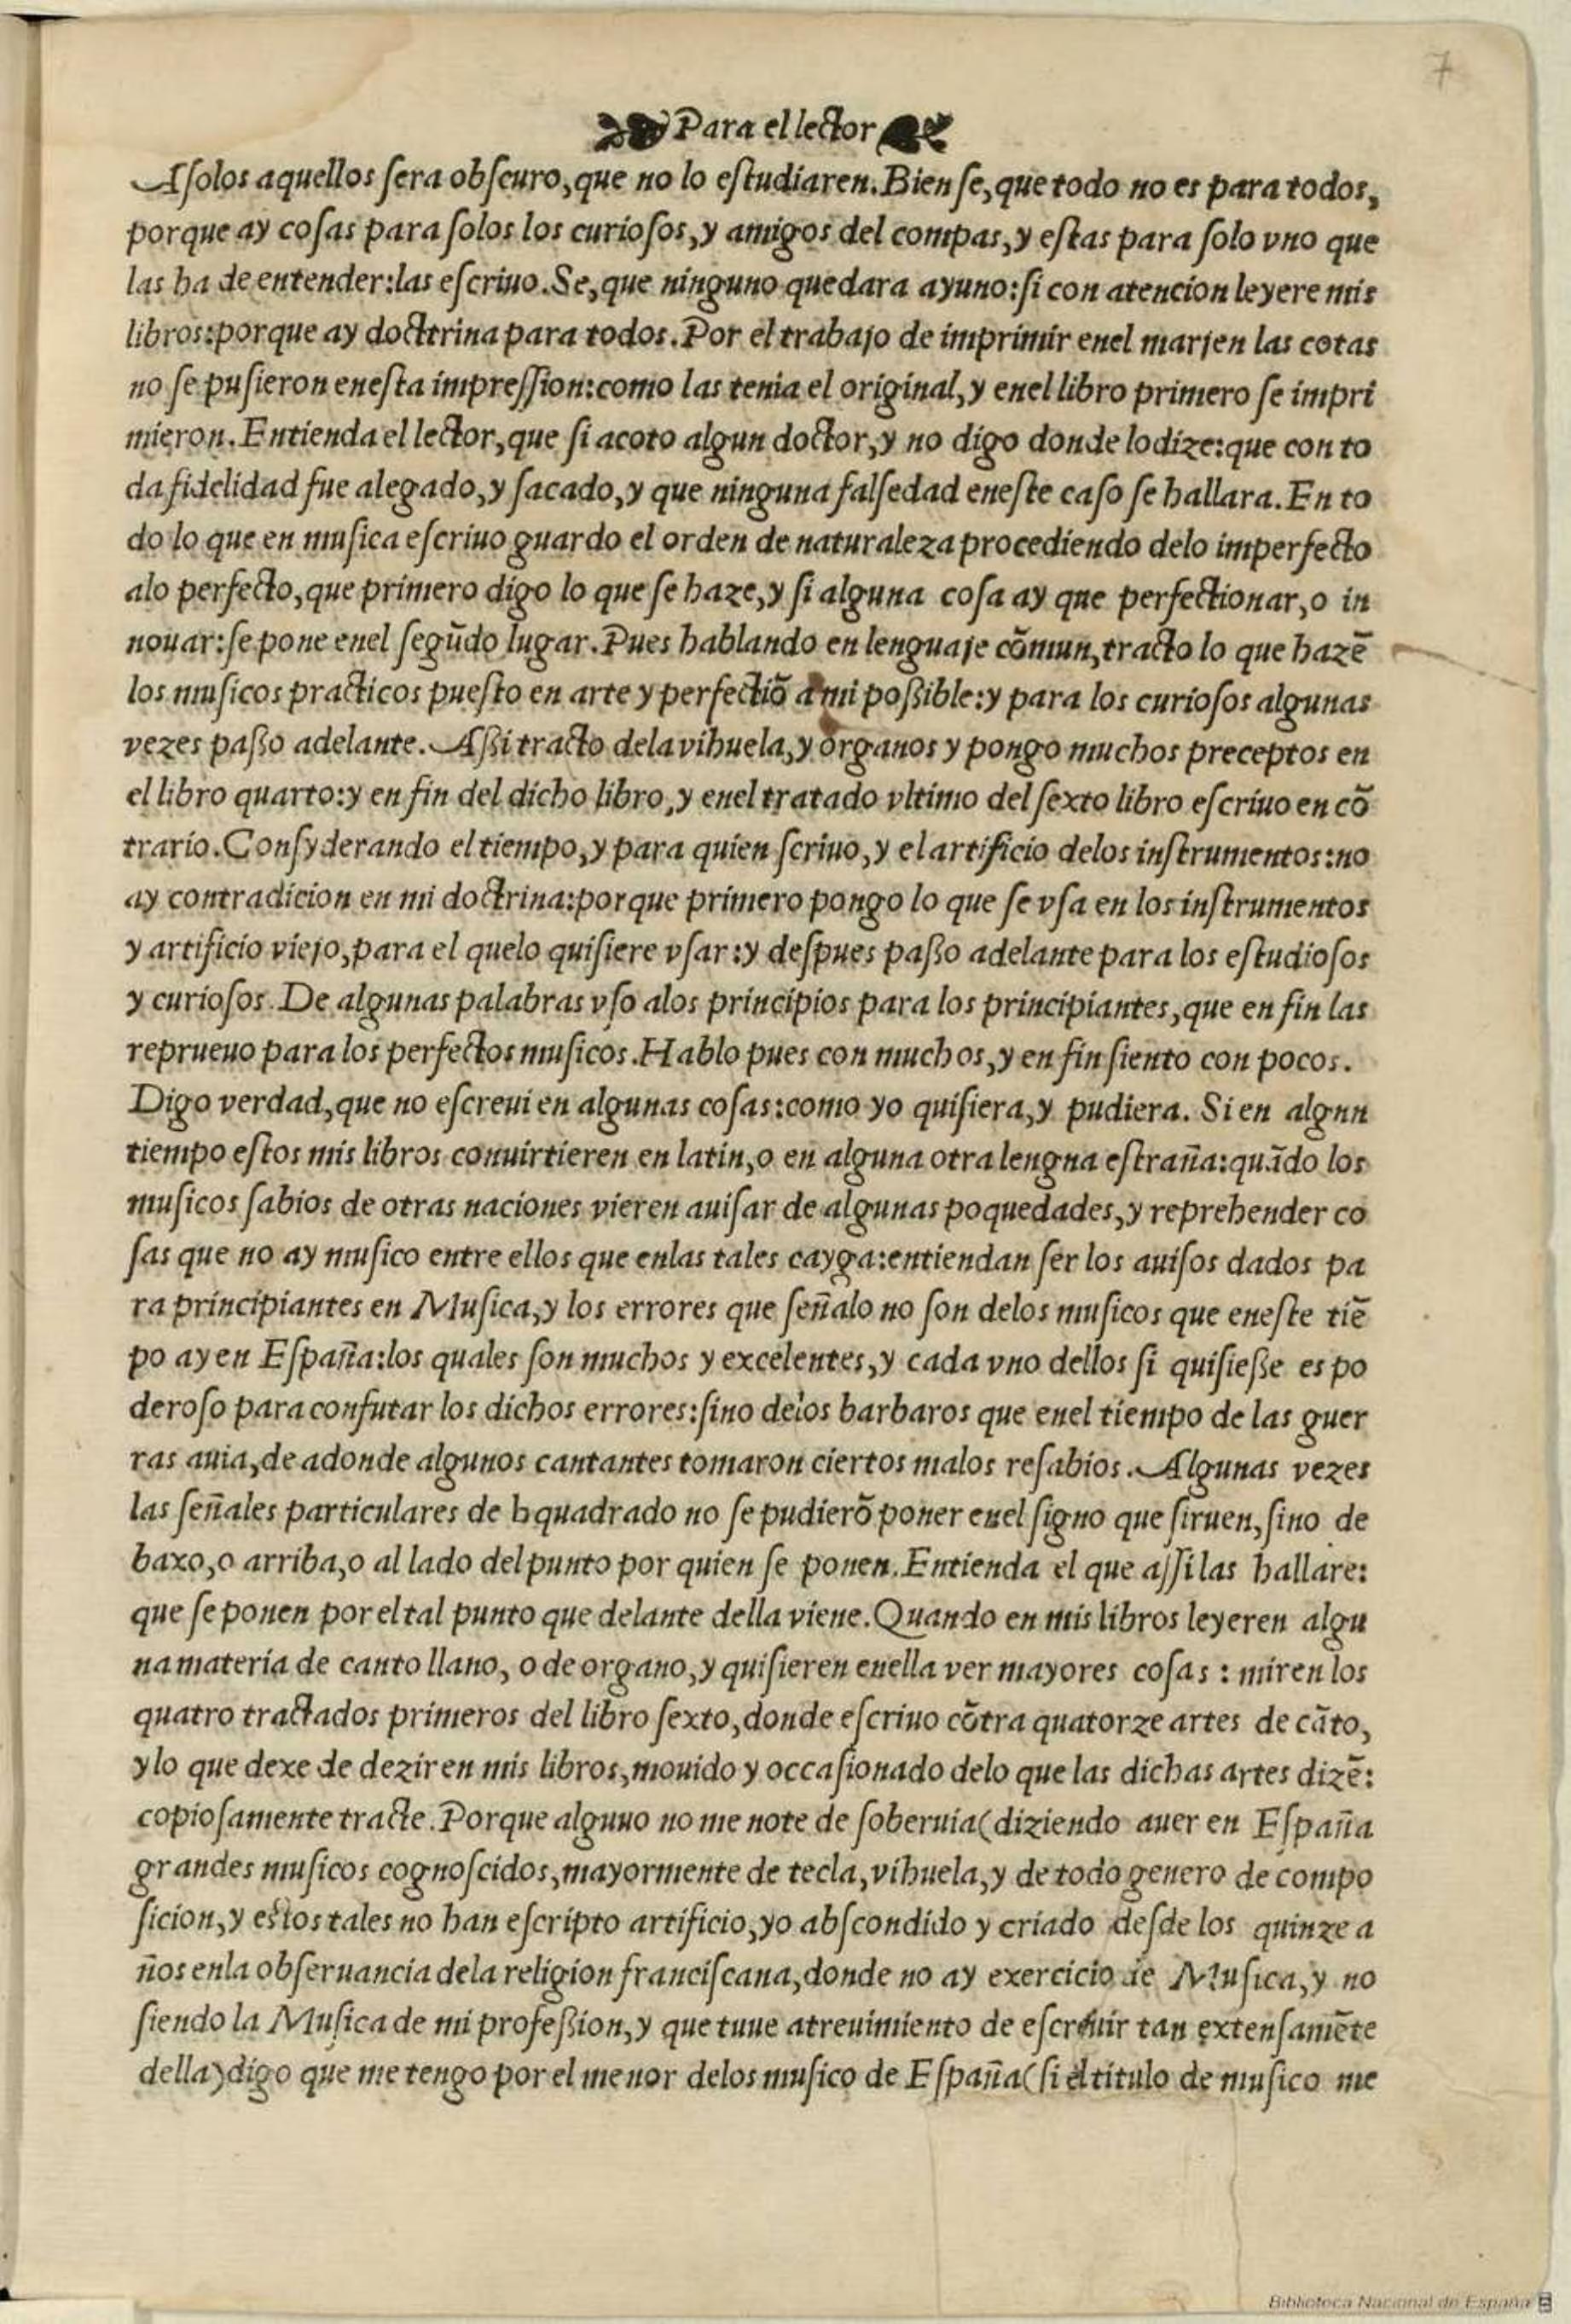 7
Para el lector
A ſolos aquellos ſera obſcuro, que no lo eſtudiaren. Bien ſe, que todo no es para todos,
porque ay coſas para ſolos los curioſos, y amigos del compas, y eſtas para ſolo vno que
las ha de entender: las eſcriuo. Se, que ninguno quedara ayuno: ſi con atencion leyere mis
libros: porque ay docttrina para todos. Por el trabajo de imprimir enel marjen las cotas
no ſe puſieron eneſta impreſſion: como las tenia el original, y enel libro primero ſe impri
mieron. Entienda el lector, que ſi acoto algun doctor, y no digo donde lo dize: que con to
da fidelidad fue alegado, y ſacado, y que ninguna falſedad eneſte caſo ſe hallara. En to
do lo que en muſica eſcriuo guardo el orden de naturaleza procediendo delo imperfecto
alo perfecto, que primero digo lo que ſe haze, y ſi alguna coſa ay que perfectionar, o in
nouar: ſe pone enel ſegūdo lugar. Pues hablando en lenguaje cōmun, tracto lo que hazē
los muſicos practicos pueſto en arte y perfectiō a mi poßible: y para los curioſos algunas
vezes paßo adelante. Aßi tracto dela vihuela, y organos y pongo muchos preceptos en
el libro quarto: y en fin del dicho libro, y enel tratado vltimo del ſexto libro eſcriuo en cō
trario. Conſyderando el tiempo, y para quien ſcriuo, y el artificio delos inſtrumentos: no
ay contradicion en mi doctrina: porque primero pongo lo que ſe vſa en los inſtrumentos
y artificio viejo, para el quelo quiſiere vſar: y deſpues paßo adelante para los eſtudioſos
y curioſos. De algunas palabras vſo alos principios para los principiantes, que en fin las
reprueuo para los perfectos muſicos. Hablo pues con muchos, y en fin ſiento con pocos.
Digo verdad, que no eſcreui en algunas coſas: como yo quiſiera, y pudiera. Si en algnn
tiempo eſtos mis libros conuirtieren en latin, o en alguna otra lengna eſtraña: quādo los
muſicos ſabios de otras naciones vieren auiſar de algunas poquedades, y reprehender co
ſas que no ay muſico entre ellos que enlas tales cayga: entiendan ſer los auiſos dados pa
ra principiantes en Muſica, y los errores que ſeñalo no ſon delos muſicos que eneſte tiē
po ay en Eſpaña: los quales ſon muchos y excelentes, y cada vno dellos ſi quiſieße es po
deroſo para confutar los dichos errores: ſino delos barbaros que enel tiempo de las guer
ras auia, de adonde algunos cantantes tomaron ciertos malos reſabios. Algunas vezes
las ſeñales particulares de b quadrado no ſe pudierō poner enel ſigno que ſiruen, ſino de
baxo, o arriba, o al lado del punto por quien ſe ponen. Entienda el que aſſi las hallare:
que ſe ponen por el tal punto que delante della viene. Quando en mis libros leyeren algu
na materia de canto llano, o de organo, y quiſieren enella ver mayores coſas : miren los
quatro tractados primeros del libro ſexto, donde eſcriuo cōtra quatorze artes de cāto,
y lo que dexe de dezir en mis libros, mouido y occaſionado delo que las dichas artes dizē:
copioſamente tracte. Porque alguuo no me note de ſoberuia (diziendo auer en Eſpaña
grandes muſicos cognoſcidos, mayormente de tecla, vihuela, y de todo genero de compo
ſicion, y eſtos tales no han eſcripto artificio, yo abſcondido y criado deſde los quinze a
ños enla obſeruancia dela religion franciſcana, donde no ay exercicio de Muſica, y no
ſiendo la Muſica de mi profeßion, y que tuue atreuimiento de eſcreuir tan extenſamēte
della) digo que me tengo por el menor delos muſico de Eſpaña (ſi el titulo de muſico me
Biblioteca Nacional de España